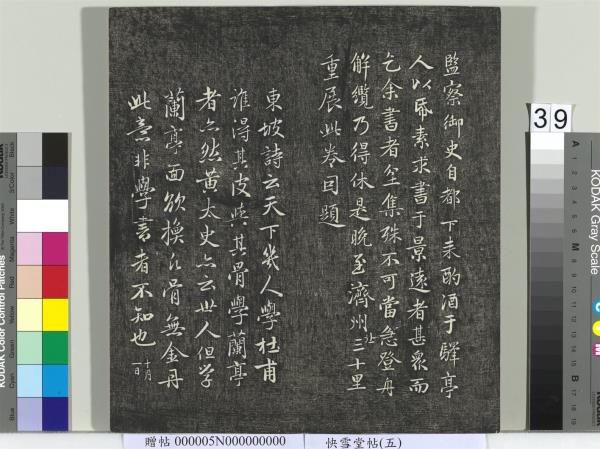 監察御史自都下来酌酒于驛亭
人以帋素求書于景遠者甚眾而
乞余書者坌集殊不可當急登舟
解纜乃得休是晚至濟州北三十里
重展此卷因題
東坡詩云天下幾人學杜甫
誰得其皮與其骨學蘭亭
者亦然黃太史亦云世人但学
蘭亭面欲換凡骨無金丹
此意非學書者不知也 十月一日
39
KODAK Gray Scale
A 1 2 3 4 5 6 M 8 9 10 11 12 13 14 15 B 17 18 19
C Y M
KODAK Color Control Patches
Black
3/Color
White
Magenta
Red
Yellow
Green
Cyan
Blue
贈帖 000005N000000000 快雪堂帖(五)